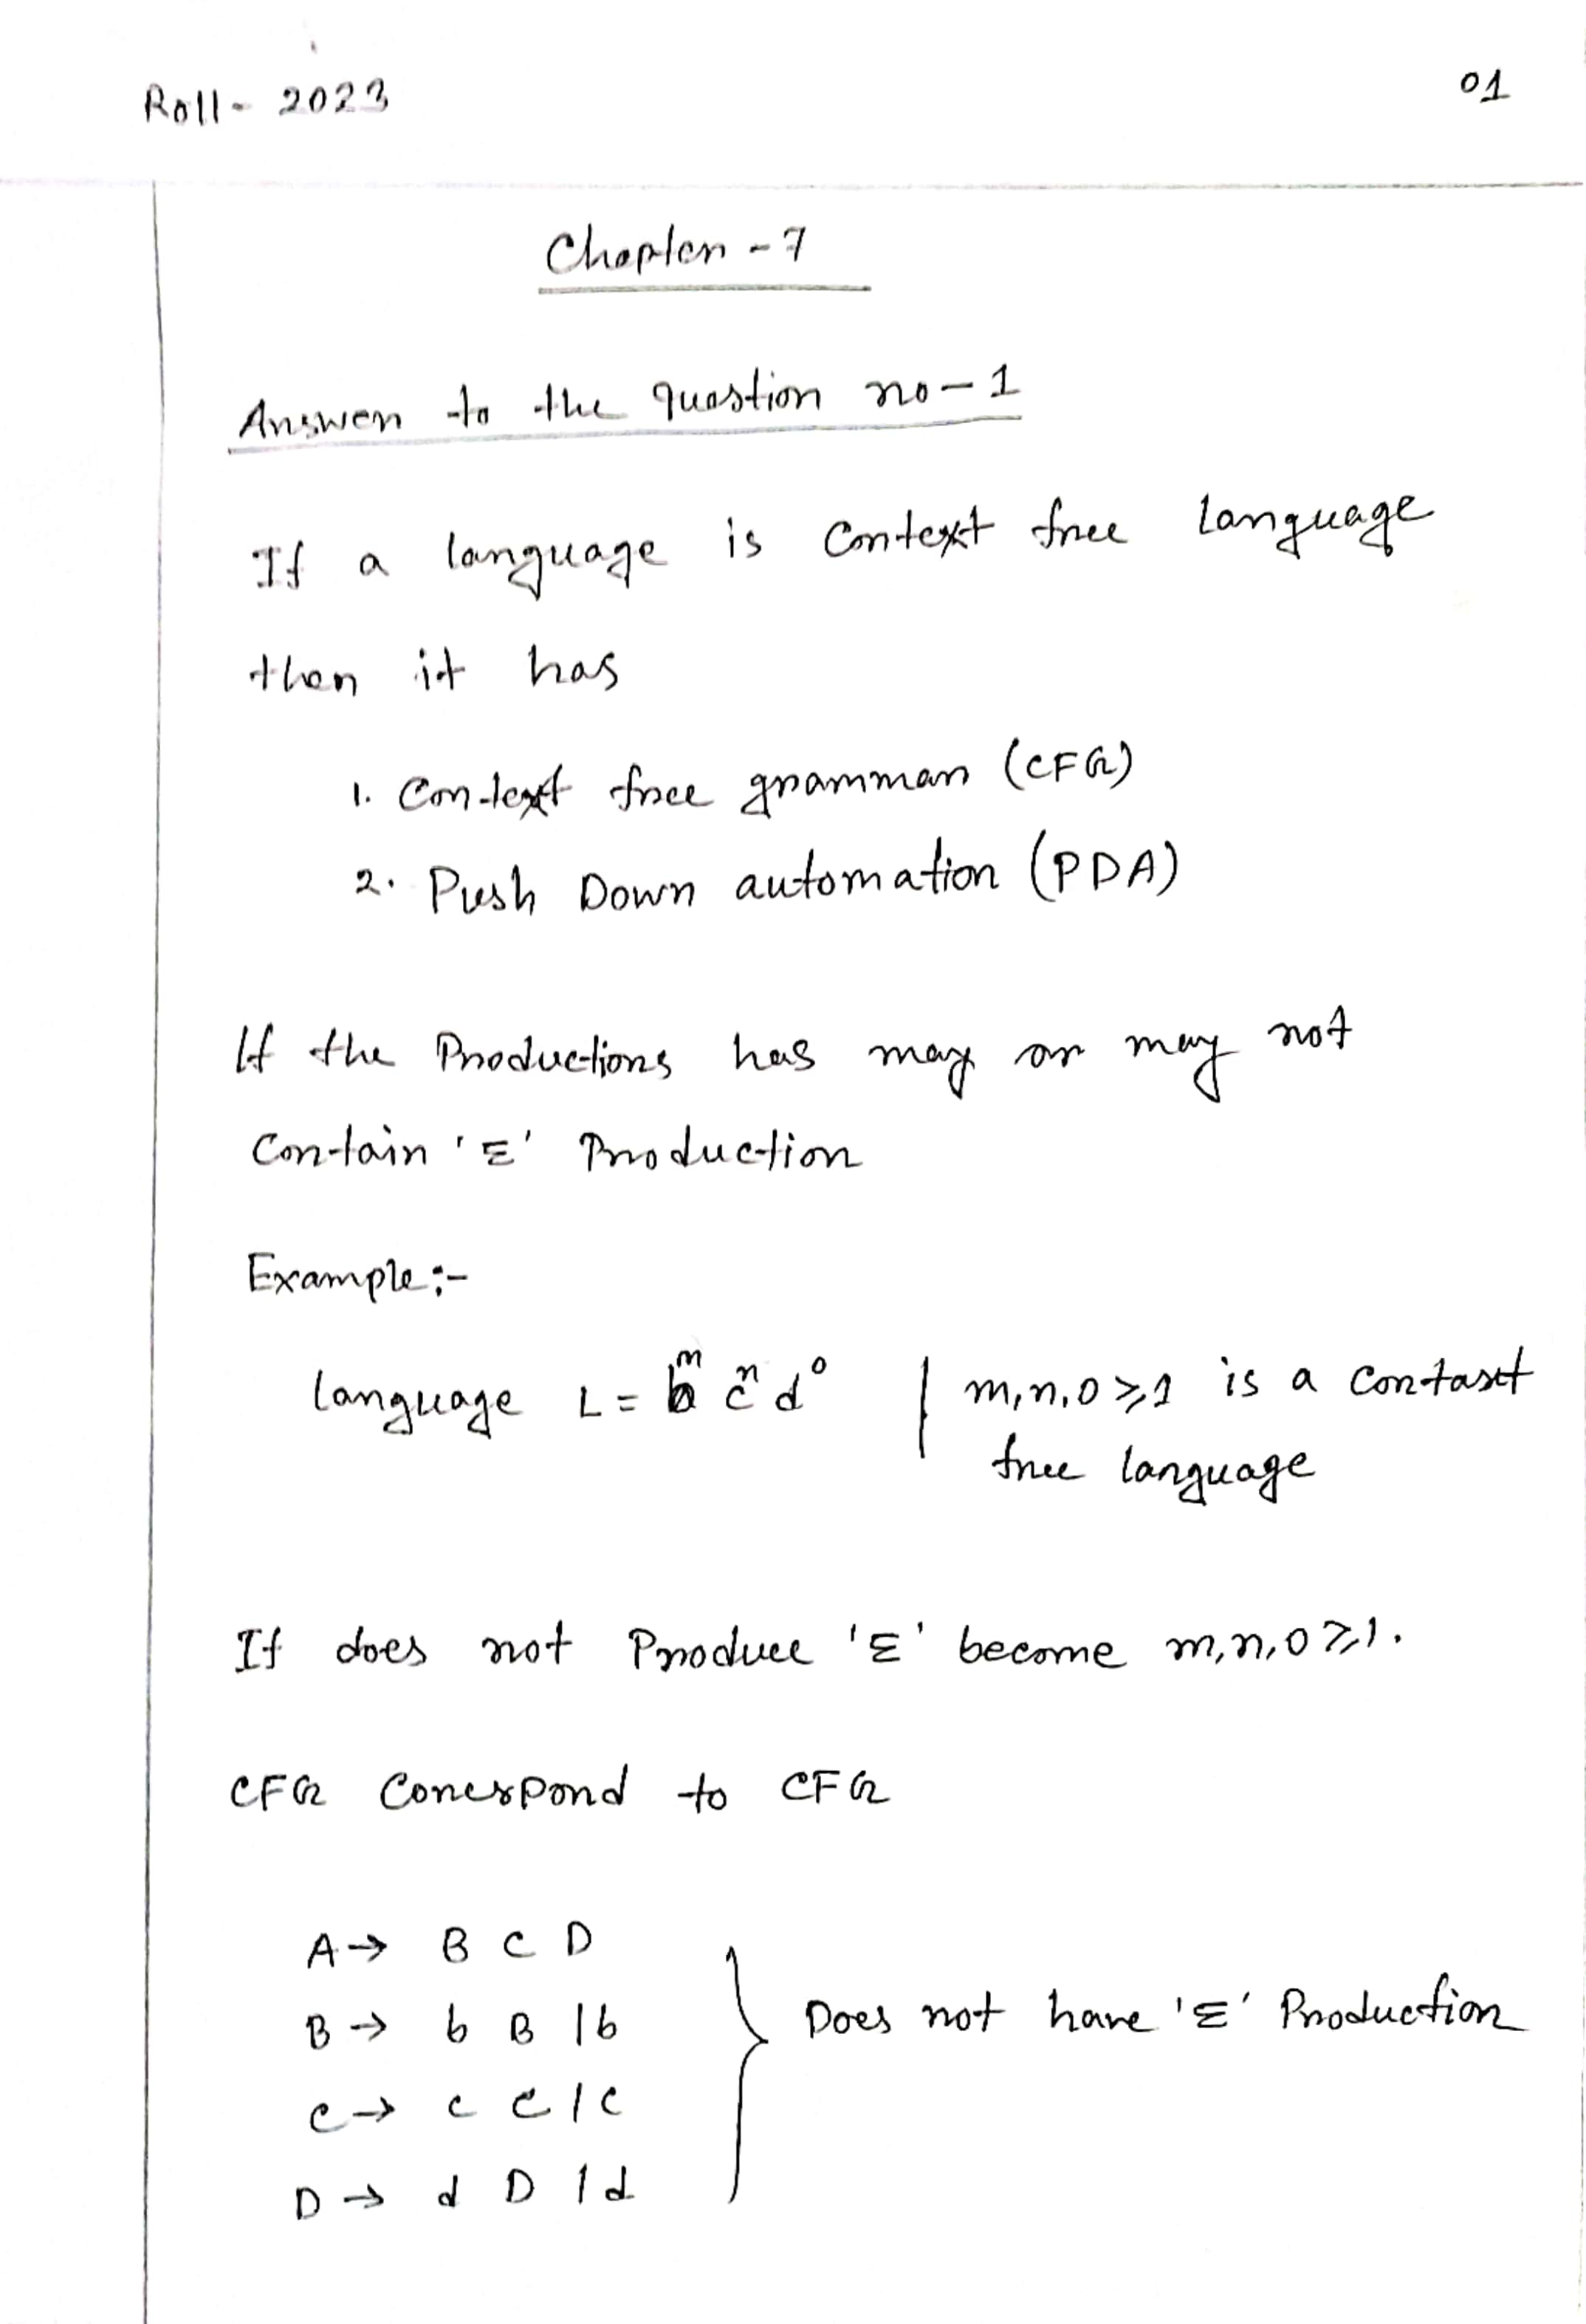 Roll- 2023
01
Chapter - 7
Answer to the question no - 1
If a language is Context free language
then it has
1. Context free grammar (CFG)
2. Push Down automation (PDA)
If the Productions has may or may not
Contain 'Σ' Production
Example:-
language L = b^m c^n d^o | m,n,o ≥ 1 is a contaxt
free language
If does not Produce 'Σ' become m,n,o ≥ 1.
CFG Correspond to CFG
A → B C D
B → b B | b
C → c C | c
D → d D | d
Does not have 'Σ' Production